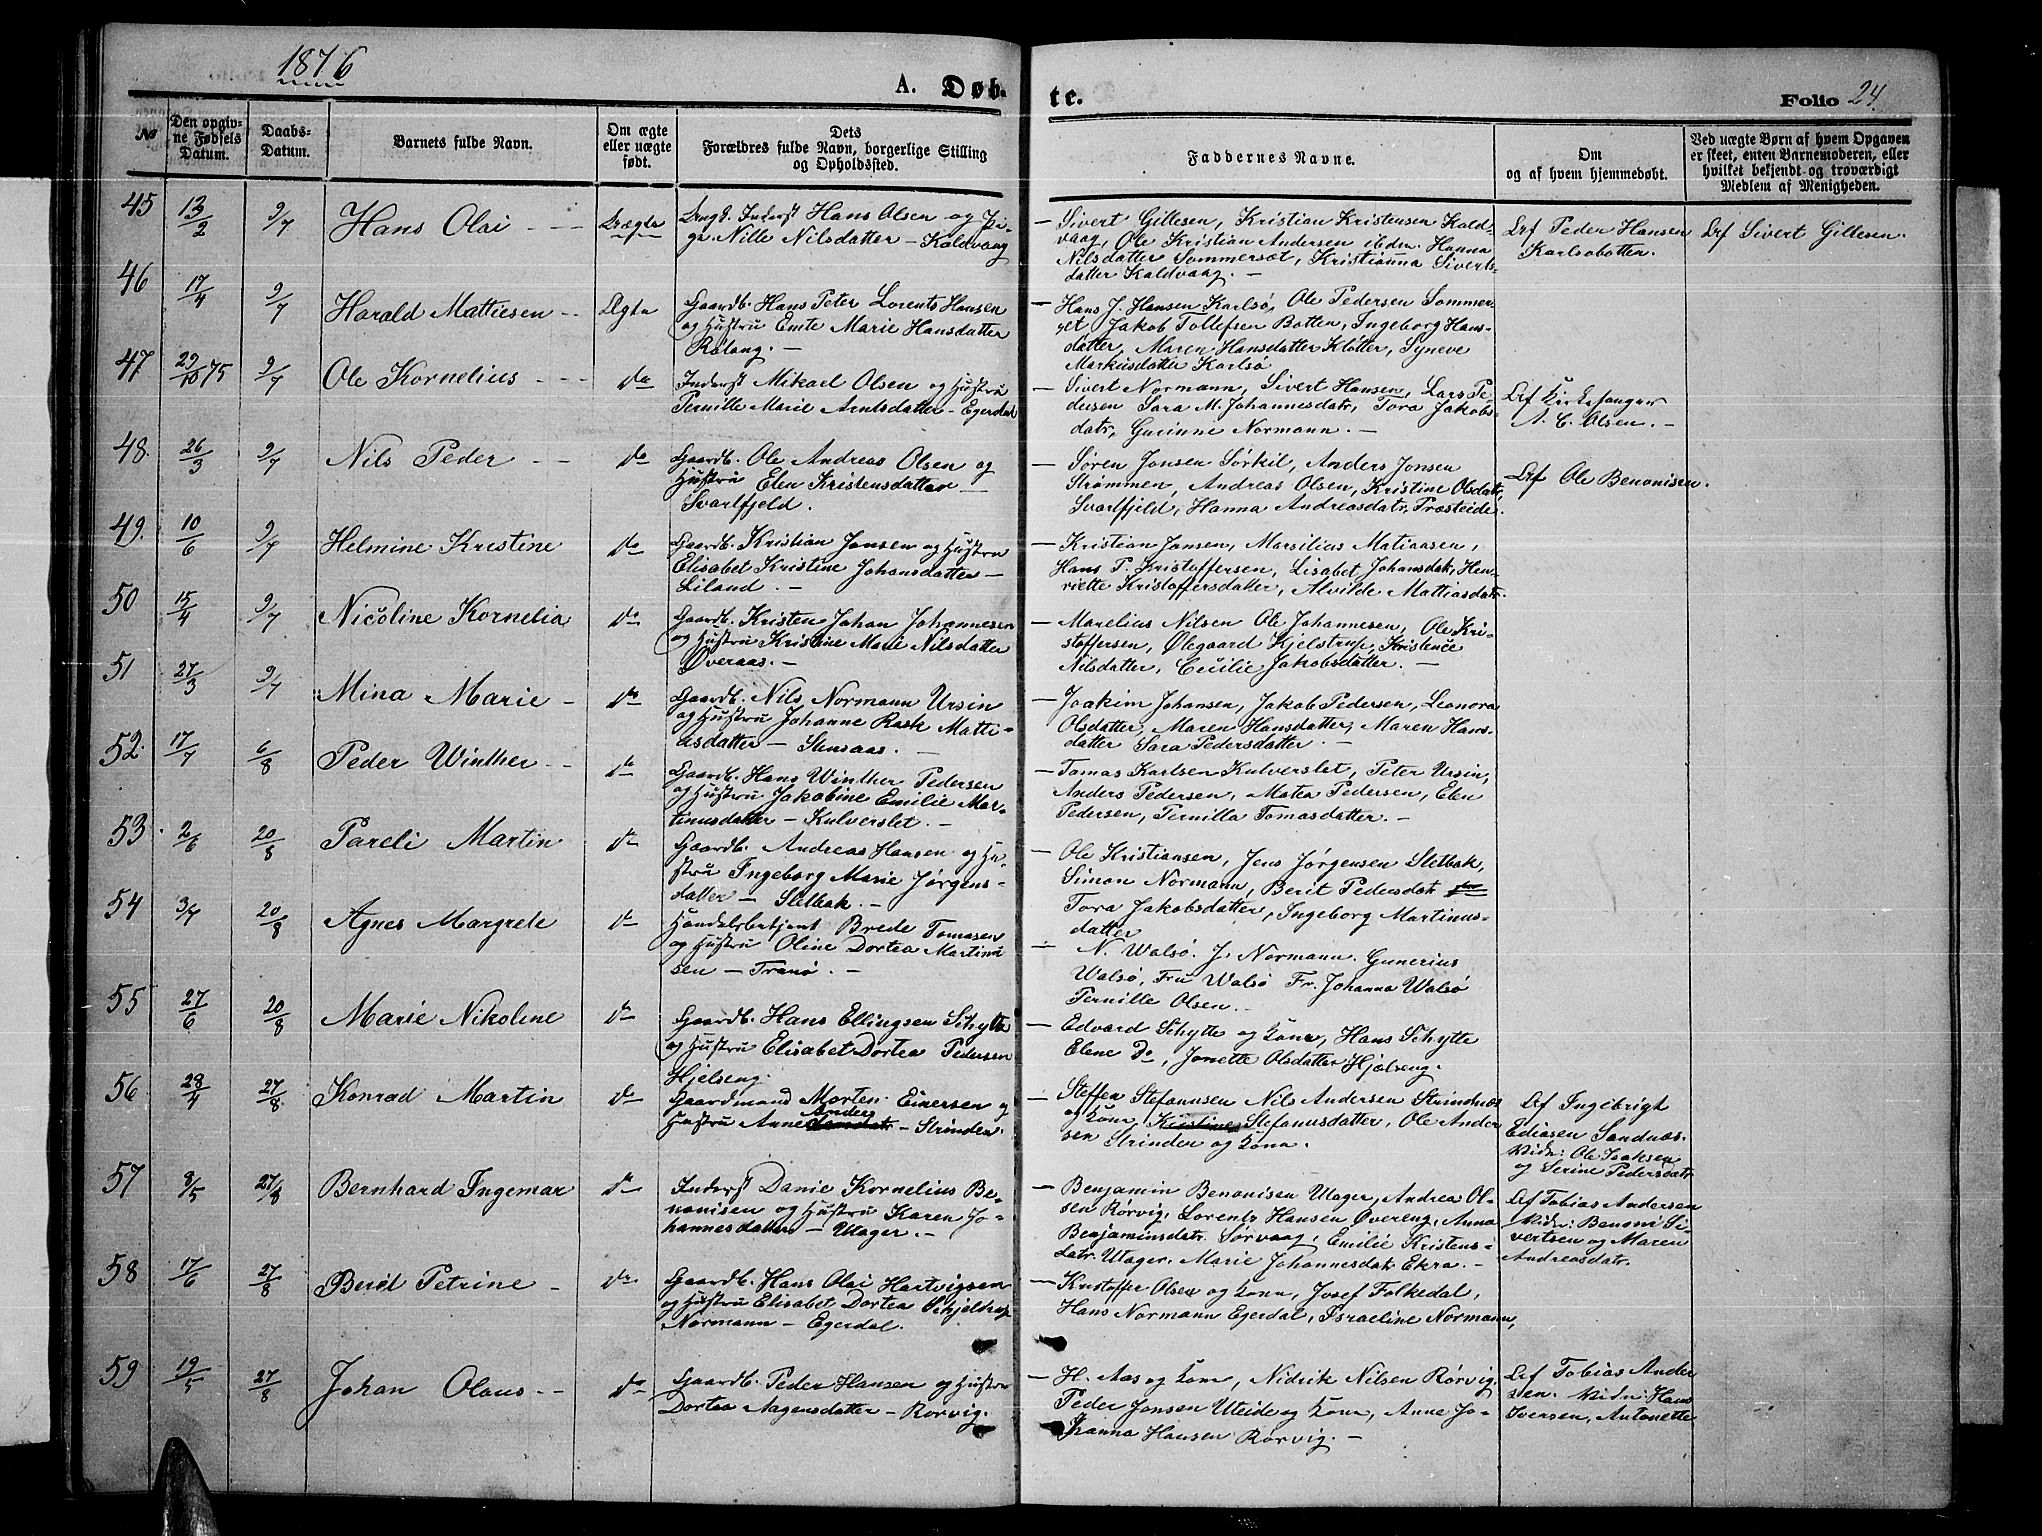 1876
A. Døb-
te.
Folio 24.
No
Den opgiv-
ne Fødsels
Datum.
Daabs-
Datum.
Barnets fulde Navn.
Om ægte
eller uægte
født.
Dets
Forældres fulde Navn, borgerlige Stilling
og Opholdssted.
Faddernes Navne.
Om
og af hvem hjemmedøbt.
Ved uægte Børn af hvem Opgaven
er skeet, enten Barnemoderen, eller
hvilket bekjendt og troværdigt
Medlem af Menigheden.
45 13/2 9/7 Hans Olai - - - Uægte
Ungk. Inderst Hans Olsen og Pi-
ge Nille Nilsdatter - Kaldvaag
- Sivert Gillesen, Kristian Kristensen Kald-
vaag, Ole Kristian Andersen ibdm. Hanna
Nilsdatter Sommersæt, Kristianna Siverts-
datter Kaldvaag. -
Af Peder Hansen
Karlsøbotten.
Af Sivert Gillesen.
46 17/4 9/7 Harald Mattiesen - - Ægte
Gaardb. Hans Peter Lorents Hansen
og Hustru Emte Marie Hansdatter
Rølang. -
- Hans J. Hansen Karlsø, Ole Pedersen Sommer
set Jakob Tollefsen Botten, Ingeborg Hans-
datter, Maren Hansdatter Kløtter, Syneve
Markusdatter Karlsø
47 29/10 75 9/7 Ole Kornelius - - - do
Inderst Mikael Olsen og Hustru
Pernille Marie Arntsdatter - Egerdal
- Sivert Normann, Sivert Hansen, Lars Pe-
dersen Sara M. Johannesdatr, Tora Jakobs-
datr, Gurinne Normann. -
Af Kirkesanger
N. C. Olsen. -
48. 26/3 9/7 Nils Peder - - do
Gaardb. Ole Andreas Olsen og
Hustru Elen Kristensdatter -
Svartfjeld.
- Søren Jonsen Sørkil, Anders Jonsen
Strømmen, Andreas Olsen, Kristine Olsdatr,
Svartfjeld, Hanna Andreasdatr, Præsteide.
Af Ole Benonisen.
49. 10/6 9/7 Helmine Kristine do
Gaardb. Kristian Jansen og Hustru
Elisabet Kristine Johansdatter -
Liland. -
- Kristian Jansen, Marsilius Matiassen,
Hans P. Kristoffersen, Lisabet Johansdatr, Hen-
riette Kristoffersdatter, Alvilde Mattiasdatr.
50 15/4 9/7 Nicoline Kornelia do
Gaardb. Kristen Johan Johannesen
og Hustru Kristine Marie Nilsdatter
Øveraas. -
- Marelius Nilsen Ole Johannesen, Ole Kri-
stoffersen, Ølegaard Kjelstrup, Kristence
Nilsdatter, Cecilie Jakobsdatter. -
51 27/3 9/7 Mina Marie - do
Gaardb. Nils Normann Ursin
og Hustru Johanne Rask Matti-
asdatter - Stensaas. -
- Joakim Johansen, Jakob Pedersen, Leonora
Olsdatter, Maren Hansdatter, Maren Hans-
datter Sara Pedersdatter. -
52. 17/7 6/8 Peder Winther - - do
Gaardb. Hans Winther Pedersen
og Hustru Jakobine Emilie Mar-
tinusdatter - Kulverslet. -
- Tomas Karlsen Kulverslet, Peter Ursin,
Anders Pedersen, Matea Pedersen, Elen
Pedersen, Pernilla Tomasdatter. -
53. 2/6 20/8 Pareli Martin do
Gaardb. Andreas Hansen og Hu-
stru Ingeborg Marie Jørgens-
datter - Sletbak. -
- Ole Kristiansen, Jens Jørgensen Sletbak,
Simon Normann, Berit Pedersdatr
Tora Jakobsdatter, Ingeborg Martinus-
datter
54 3/7 20/8 Agnes Margrete do
Handelsbetjent Brede Tomasen
og Hustru Oline Dortea Martinu
sen - Tranø. -
- N. Walsø. J. Normann. Gunerius
Walsø, Fru Walsø Fr. Johanna Walsø
Pernille Olsen. -
55 27/6 20/8 Marie Nikoline do
Gaardb. Hans Ellingsen Schytte
og Hustru Elisabet Dortea Pedersen
Hjelseng.
- Edvard Schytte og Kone, Hans Schytte
Elene Do, Jonette Olsdatter Hjelseng.
56 28/4 27/8 Konrad Martin do
Gaardmand Morten Einersen og
Hustru Anne Anders datr - Strinden.
- Steffen Stefanusen Nils Andersen Strindnes
og Kone, Kristine Stefanusdatter, Ole Ander
sen Strinden og Kone.
Af Ingebrigt
Ediasen Sandnæs.
Vidn: Ole Isaksen
og Serine Pedersdatr
57 8/5 27/8 Bernhard Ingemar do
Inderst Danie Kornelius Be-
nonisen og Hustru Karen Jo-
hannesdatter - Utager. -
- Benjamin Benonisen Utager, Andrea Ol-
sen Rørvig, Lorents Hansen Øvereng, Anna
Benjaminsdatr. Sørvaag, Emilie Kristens-
datr. Utager. Marie Johannesdatr Ekra. -
Af Tobias Andersen
Vidn: Benoni Si-
vertsen og Maren
Andreasdatr.
58 17/6 27/8 Berôl Petrine - do
Gaardb. Hans Olai Hartvigsen
og Hustru Elisabet Dortea Schjeldrup
Normann - Egerdal.
- Kristoffer Olsen og Kone, Josef Folkedal,
Hans Normann Egerdal, Israeline Normann,
59 19/5 27/8 Johan Olaus - - do
Gaardb. Peder Hansen og Hustru
Dortea Aagensdatter - Rørvig.
- H. Aas og Kone, Nidrik Nilsen Rørvig
Peder Jonsen Uteide og Kone, Anne Jo-
hanna Hansen Rørvig. -
Af Tobias Ander
sen. Vidn: Hans
Iversen, Antonette